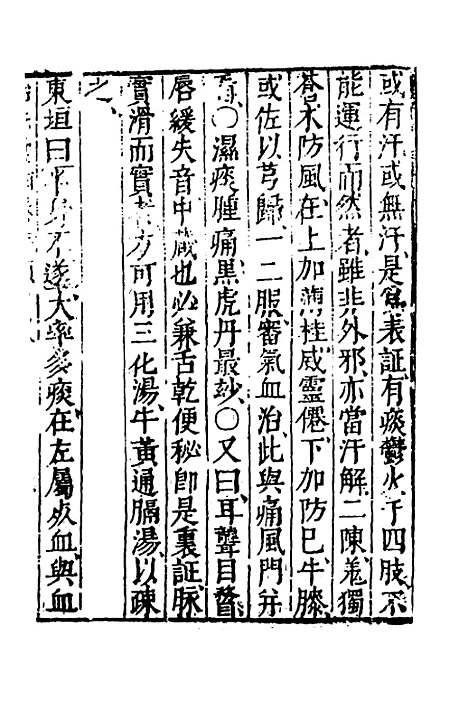 或有汗或無汗是爲表証有痰鬱火于四肢不
能運行而然者雖非外邪亦當汗解二陳羌獨
蒼朮防風在上加薄桂威靈僊下加防己牛膝
或佐以芎歸一二服審氣血治此與痛風門並
○濕痰腫痛黑虎丹最妙○又曰耳聾目瞀
唇緩失音中蔵也必兼舌乾便秘卽是裏証脉
實滑而實者方可用三化湯牛黃通膈湯以疎
之
東垣曰半身不遂大率多痰在左屬死血與血